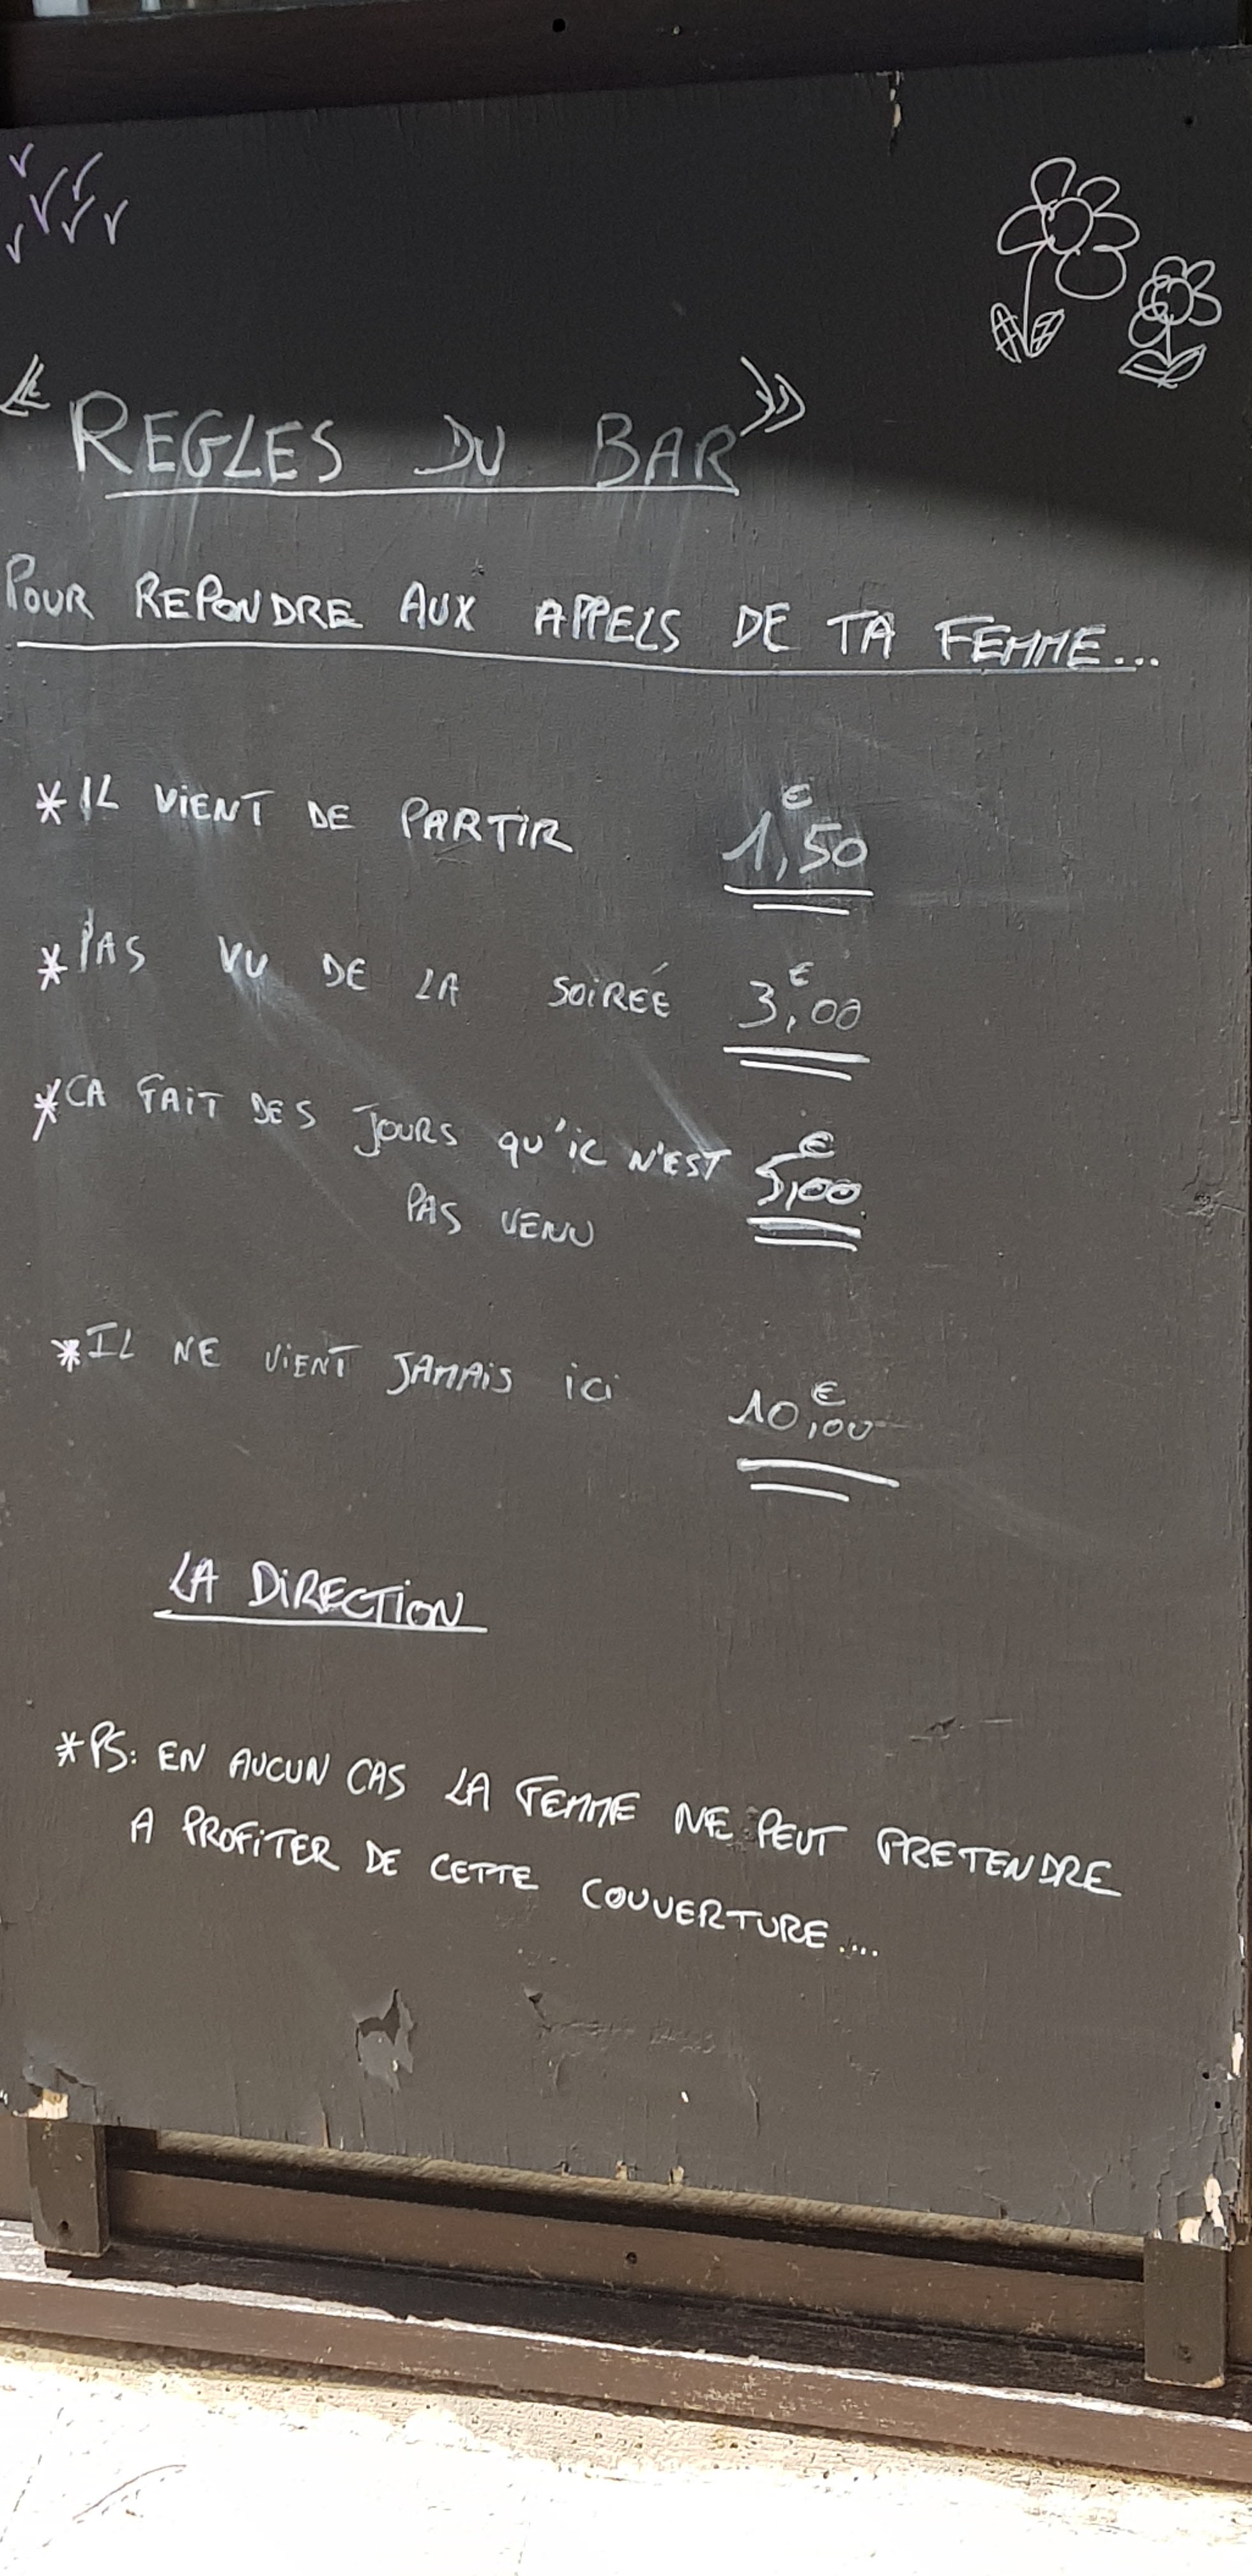 « REGLES DU BAR »
POUR REPONDRE AUX APPELS DE TA FEMME...
* IL VIENT DE PARTIR 1,50 €
* PAS VU DE LA SOIRÉE 3,00 €
* CA FAIT DES JOURS QU'IL N'EST 5,00 €
PAS VENU
* IL NE VIENT JAMAIS ICI 10,00 €
LA DIRECTION
* PS: EN AUCUN CAS LA FEMME NE PEUT PRETENDRE
A PROFITER DE CETTE COUVERTURE....